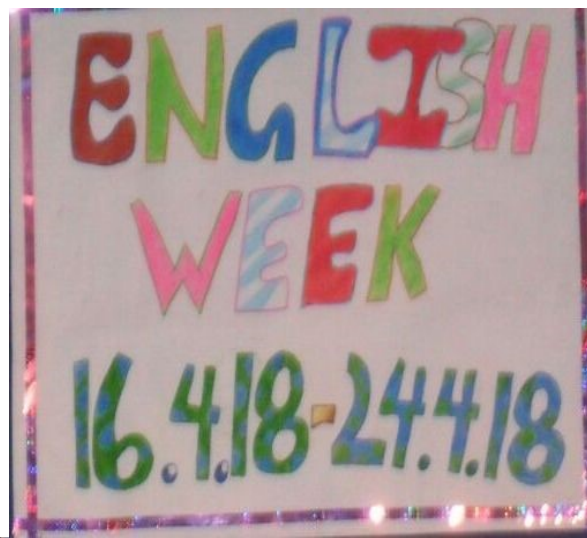 ENGLISH
WEEK
16.4.18-24.4.18